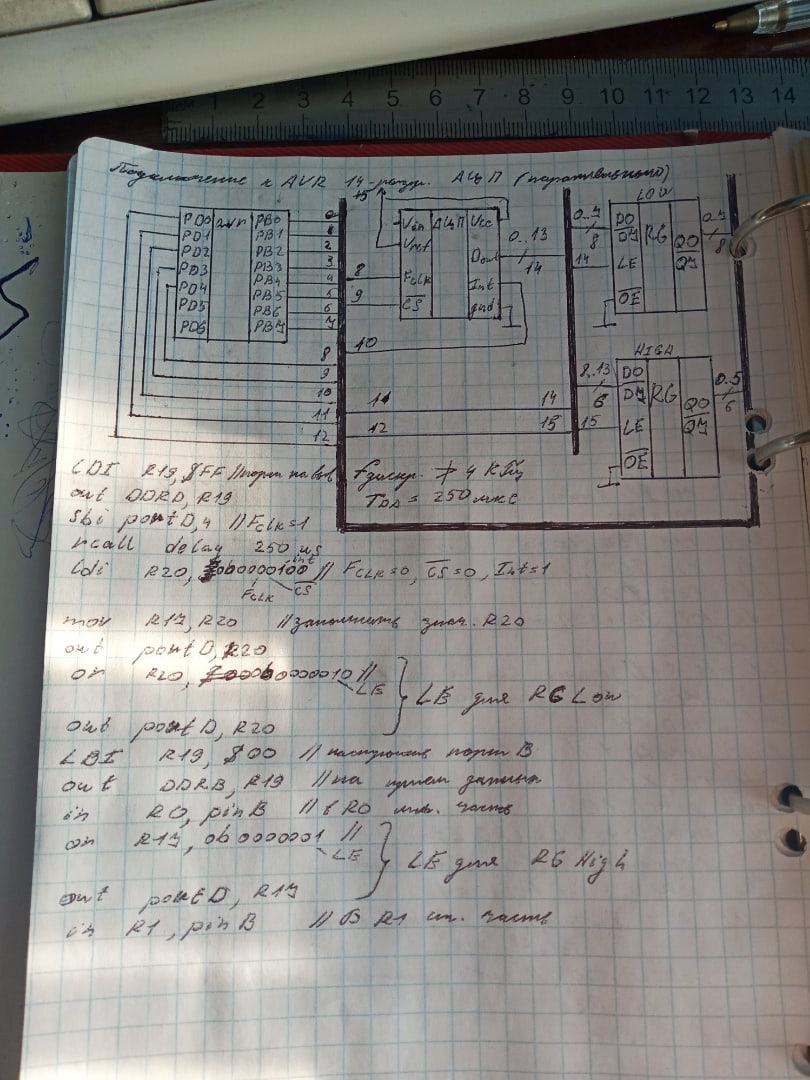 1 2 3 4 5 6 7 8 9 10 11 12 13 14
Подключение к AVR 14-разр. АЦП (параллельного)
LOW
15
PD0 PB0 0
PD1 PB1 1
PD2 PB2 2
PD3 PB3 3
PD4 PB4 4
PD5 PB5 5
PB6 6
PD6 PB7 7
8
9
10
11
12
Vin АЦП Vcc
Vref
Dout 0..13
14
8 Fclk Int
9 CS gnd
10
11 14
12 15
0..7 D0 RG 0..7
8 D7 Q0 8
14 LE Q7
OE
HIGH
8..13 D0 RG 0..5
6 D7 Q0 6
15 LE Q7
OE
Fдискр. ≯ 4 КГц
= 250 мкс
LDI R19, $FF // порт на выв
out DDRD, R19
sbi portD, 4 // Fclk=1
rcall delay 250 us
int
ldi R20, 0b0000100 // Fclk=0, CS=0, Int=1
Fclk CS
mov R17, R20 // запомнить знач. R20
out portD, R20
or R20, 0b0000010 //
LE
LE для RG Low
out portD, R20
LDI R19, $00 // настроить порт B
out DDRB, R19 // на прием данных
in R0, pinB // в R0 мл. часть
or R17, 0b0000001 //
LE
LE для RG High
out portD, R17
in R1, pinB // В R1 ст. часть